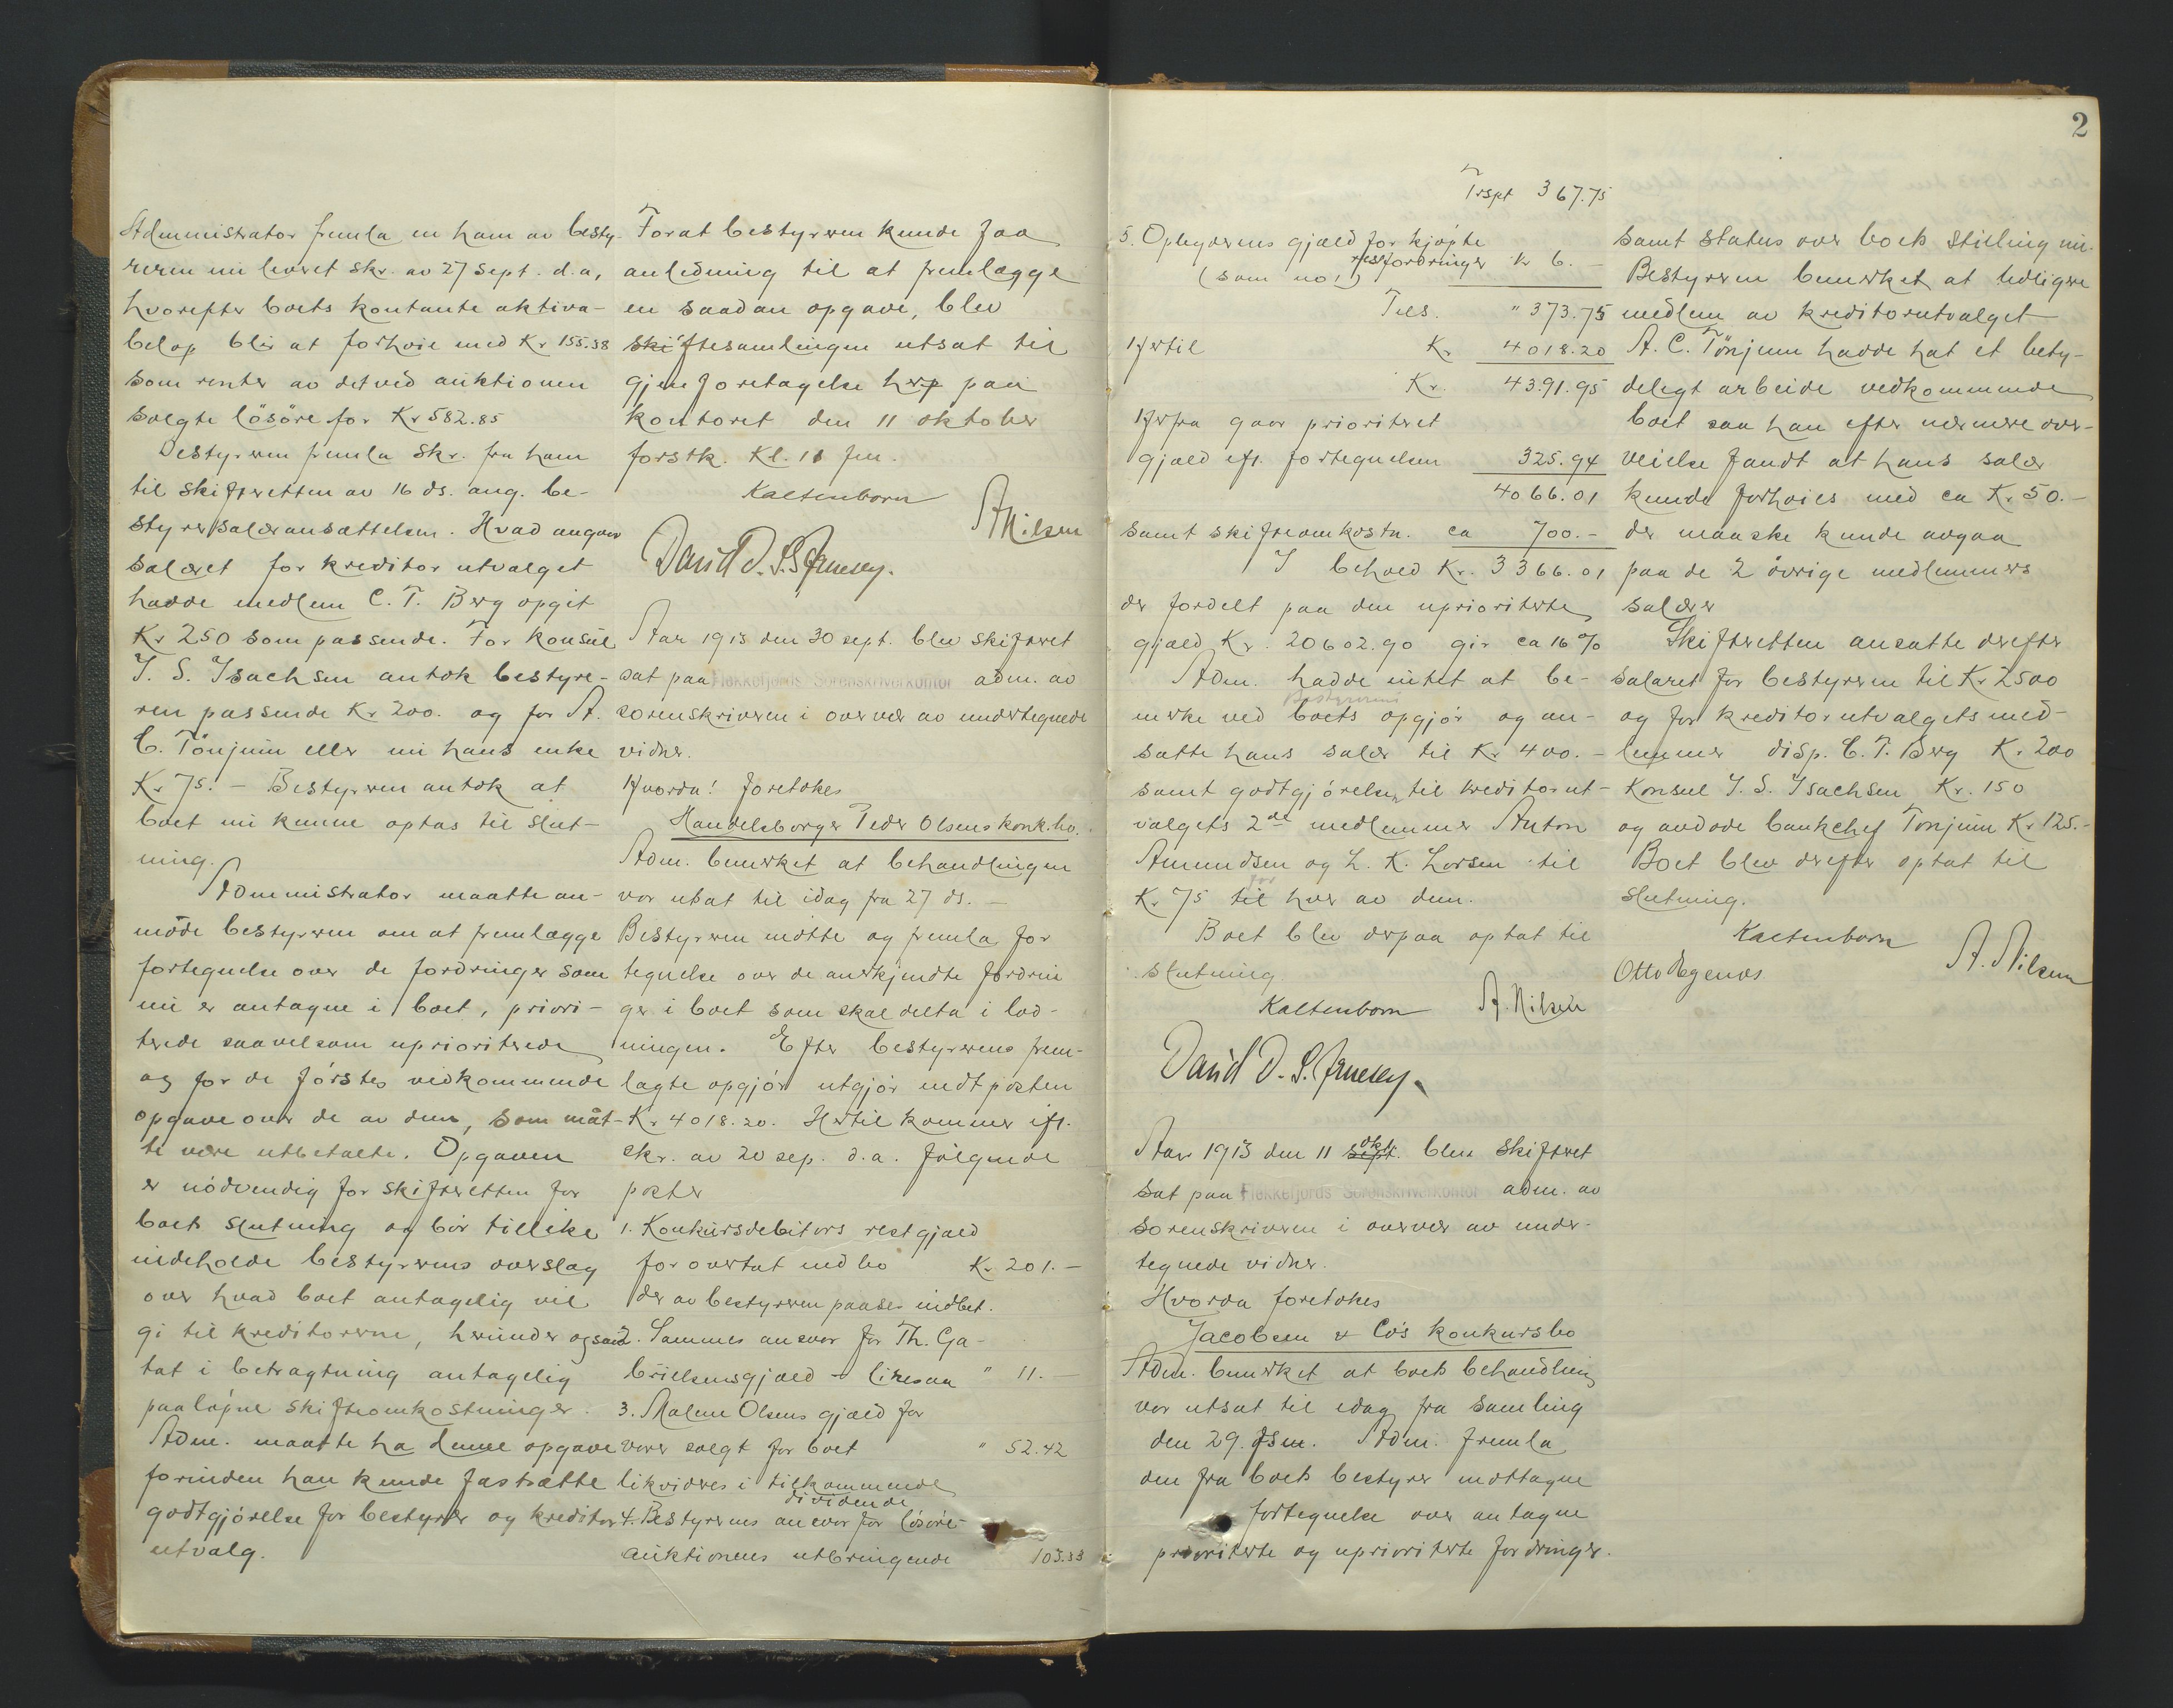 Administrator fremla en ham av besty-
reren nu levret skr. av 27 Sept. d.a,
hvorefter boets kontante aktiva-
beløp blir at forhöie med Kr 155.38
som renter av det ved auktionen
solgte lösöre for Kr 582.85
Bestyreren fremla skr. fra ham
til skifteretten av 16 ds. ang. be-
styrersalæransættelsen. Hvad angaar
salæret for kreditorutvalget
hadde medlem C. T. Berg opgit
Kr 250 som passende. For konsul
J. S. Isachsen antok bestyre-
ren passende Kr 200. og for A.
C. Tönjum eller nu hans enke
Kr 75. - Bestyreren antok at
boet nu kunne optas til slut-
ning.
Administrator maatte an-
mode bestyreren om at fremlægge
fortegnelse over de fordringer som
nu er antagne i boet, priori-
terede saavelsom uprioriterede
og for de förstes vedkommende
opgave over de av dem, som måt-
te være utbetalte. Opgaven
er nödvendig for skifteretten for
boets slutning og bör tillike
indeholde bestyrerens overslag
over hvad boet antagelig vil
gi til kreditorerne, herunder ogsaa
tat i betragtning antagelig
paaløpne skifteomkostninger.
Adm. maatte ha denne opgave
forinden han kunde fastsætte
godtgjörelse for bestyrer og kreditor
utvalg.
Forat bestyreren kunde faa
anledning til at fremlægge
en saadan opgave, blev
skiftesamlingen utsat til
gjenforetagelse her paa
kontoret den 11 oktober
förstk. Kl. 11 fm.
Kaltenborn
A Nilsen
David D. S.
Aar 1913 den 30 sept. blev skifteret
sat paa Flekkefjords Sorenskriverkontor adm. av
sorenskriveren i overvær av undertegnede
vidner.
Hvorda! foretokes
Handelsborger Peder Olsens konk.bo.
Adm. bemerket at behandlingen
var utsat til idag fra 27 ds. -
Bestyreren mötte og fremla for
tegnelse over de anerkjendte fordrin
ger i boet som skal delta i lod-
ningen. Efter bestyrerens frem-
lagte opgjör utgjör indtægten
Kr 4018.20. Hertil kommer ifl.
skr. av 20 sep. d.a. følgende
poster
1. Konkursdebitors restgjæld
for overtat indbo Kr 201. -
der av bestyreren paasees indbet.
2. Sammes ansvar for Th. Ga-
brielsens gjæld - likesaa " 11. -
3. Malene Olsens gjæld for
varer solgt for boet " 52.42
likvideres i tilkommende
dividende
4. Bestyrerens ansvar for løsöre-
auktionens utbringende 103.33
2
Trspt 367.75
5. Opkjøperens gjæld for kjøpte
restfordringer Kr 6. -
(som no 1)
Tils. " 373.75
Hertil Kr 4018.20
Kr. 4391.95
Herfra gaar prioritert
gjæld ifl. fortegnelsen 325.94
4066.01
samt skifteomkostn. ca 700. -
I behold Kr. 3366.01
der fordelt paa den uprioriterte
gjæld Kr. 20602.90 gir ca 16%
Adm. hadde intet at be-
merke ved boets opgjör og an-
Bestyrerens
satte hans salær til Kr 400. -
samt godtgjörelsen til kreditorut-
valgets 2de medlemmer Anton
Amundsen og L. K. Larsen til
for
Kr 75 til hver av dem.
Boet blev derpaa optat til
slutning
Kaltenborn A. Nilsen
David D. S.
Aar 1913 den 11 sept. okt. blev skifteret
sat paa Flekkefjords Sorenskriverkontor adm. av
sorenskriveren i overvær av under-
tegnede vidner.
Hvorda foretokes
Jacobsen & Co's konkursbo
Adm. bemerket at boets behandling
var utsat til idag fra samling
den 29. Adm. fremla
den fra boets bestyrer mottagne
fortegnelse over antagne
prioriterte og uprioriterte fordringer.
samt status over boets stilling nu.
Bestyreren bemerket at tidligere
medlem av kreditorutvalget
A. C. Tönjum hadde hat et bety-
deligt arbeide vedkommende
boet saa han efter nærmere over-
veielse fandt at hans salær
kunde forhøies med ca Kr 50. -
der maaske kunde avgaa
paa de 2 övrige medlemmers
salærer
Skifteretten ansatte derefter
salæret for bestyreren til Kr 2500
og for kreditorutvalgets med-
lemmer disp. C. T. Berg Kr 200
Konsul J. S. Isachsen Kr. 150
og avdøde bankchef Tönjum Kr 125. -
Boet blev derefter optat til
slutning.
Kaltenborn
A. Nilsen
Otto Egenæs